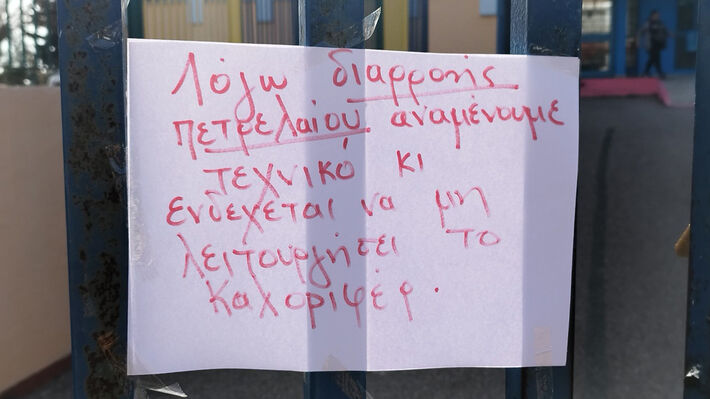 Λόγω διαρροής
πετρελαίου αναμένουμε
τεχνικό κι
ενδέχεται να μη
λειτουργήσει το
καλοριφέρ.